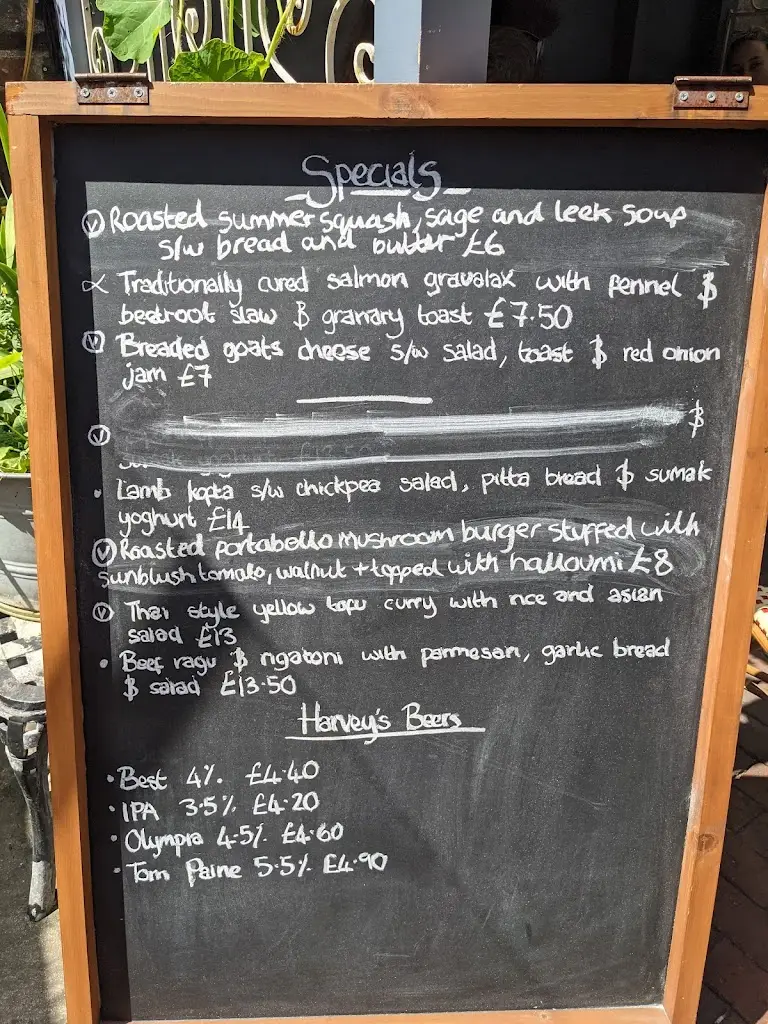 Specials
Ⓥ Roasted summer squash, sage and leek soup
s/w bread and butter £6
∝ Traditionally cured salmon gravalax with fennel &
beetroot slaw & granary toast £7.50
Ⓥ Breaded goats cheese s/w salad, toast & red onion
jam £7
Ⓥ &
• Lamb kofta s/w chickpea salad, pitta bread & sumak
yoghurt £14
Ⓥ Roasted portabello mushroom burger stuffed with
sunblush tomato, walnut + topped with halloumi £8
Ⓥ Thai style yellow tofu curry with rice and asian
salad £13
• Beef ragu & rigatoni with parmesan, garlic bread
& salad £13.50
Harvey's Beers
• Best 4% £4.40
• IPA 3.5% £4.20
• Olympia 4.5% £4.60
• Tom Paine 5.5% £4.90